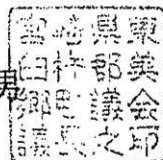 宮崎県東
臼杵郡美
郷町議会
議長之印
男